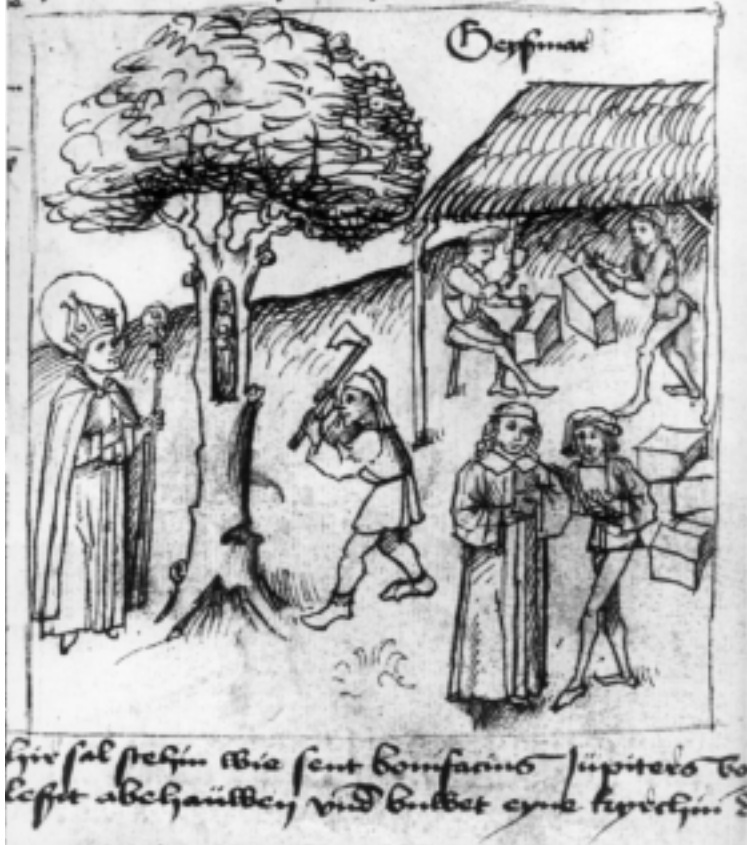 Geysmar
hir sal stehin wie sent bonifacius Jupiters
lesit abehauwen vnd buwet eyne kyrchin